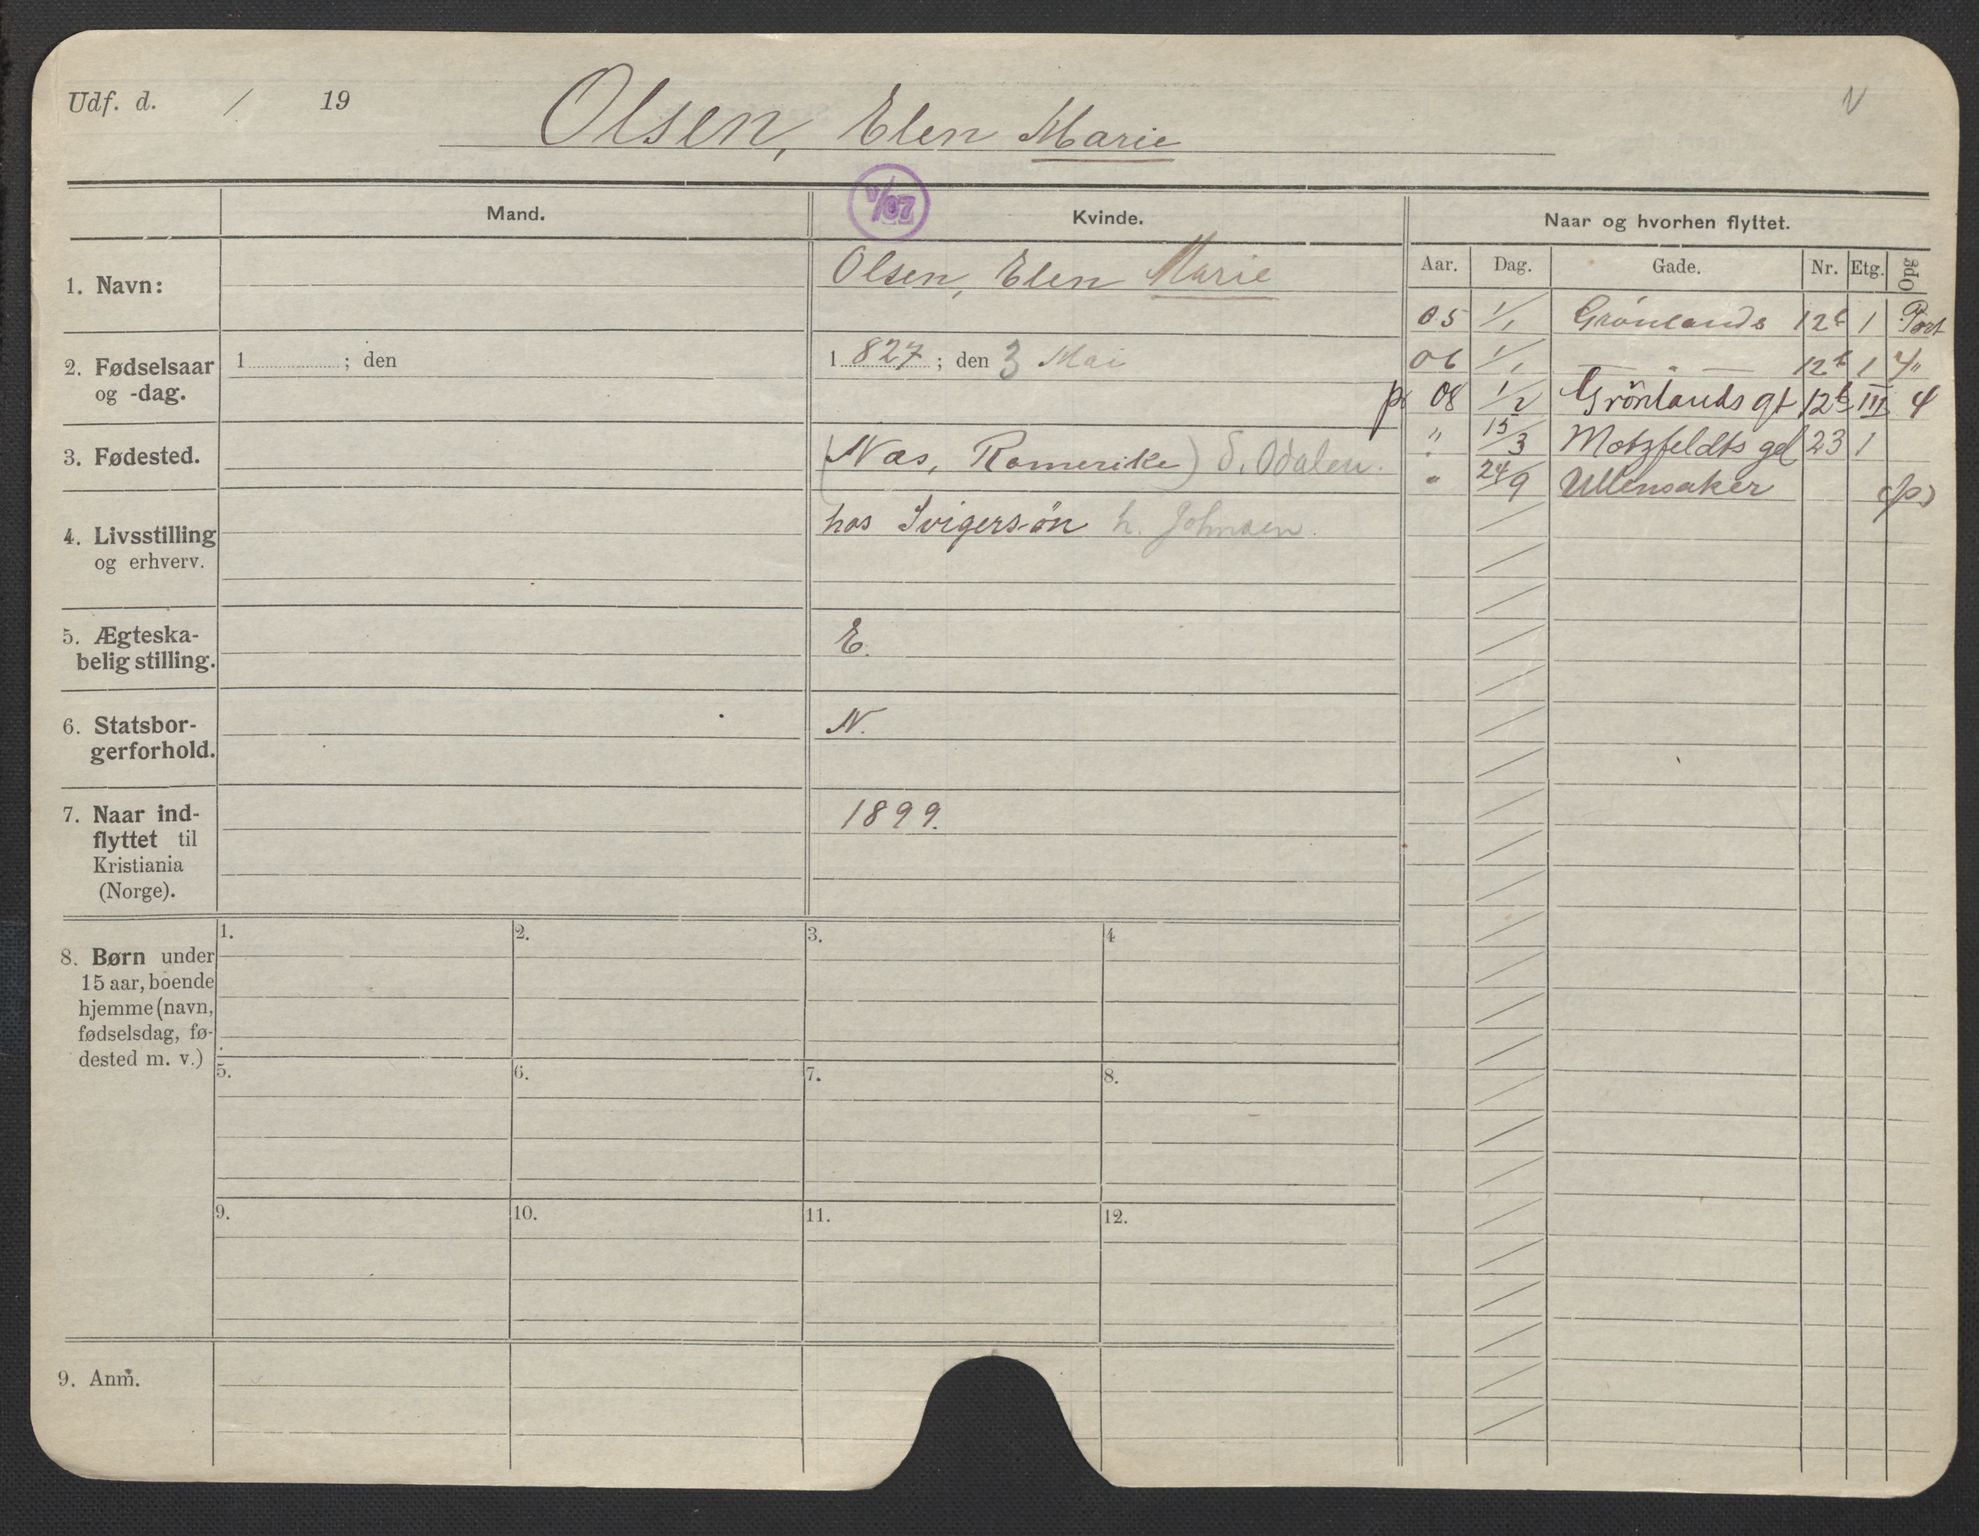 Udf. d. / 19 Olsen, Elen Marie N
V/07
Mand. Kvinde. Naar og hvorhen flyttet.
Aar. Dag. Gade. Nr. Etg. Opg
1. Navn: Olsen, Elen Marie
05 1/1 Grönlands 12b 1 Port
2. Fødselsaar og -dag. 1 ; den 1827 ; den 3 Mai
06 1/1 — " — 12b 1 4"
p. 08 1/2 Grönlands gt 12b III 4
3. Fødested. (Næs, Romerike) S. Odalen.
" 15/3 Motzfeldts gd 23 1
" 24/9 Ullensaker (p)
4. Livsstilling og erhverv. hos Svigersön h. Johnsen.
5. Ægteska-
belig stilling. E.
6. Statsbor-
gerforhold. N.
7. Naar ind-
flyttet til
Kristiania
(Norge). 1899.
8. Børn under
15 aar, boende
hjemme (navn,
fødselsdag, fø-
dested m. v.)
1. 2. 3. 4
5. 6. 7. 8.
9. 10. 11. 12.
9. Anm.